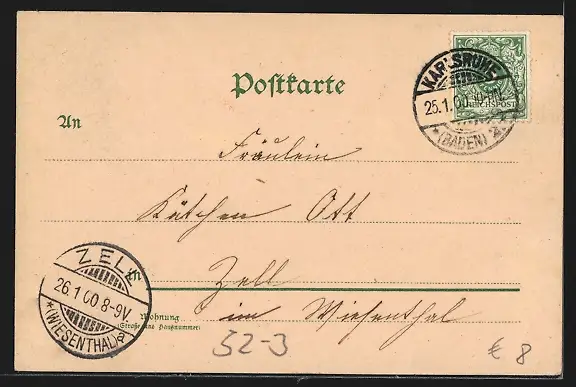 Postkarte
KARLSRUHE
25.1.00
REICHSPOST
*(BADEN)
An
Fräulein
Kätchen Ott
ZELL
in
Zell
26.1.00 8-9V.
*(WIESENTHAL)*
Wohnung
(Straße und Hausnummer)
im Wiesenthal
52-3
€ 8